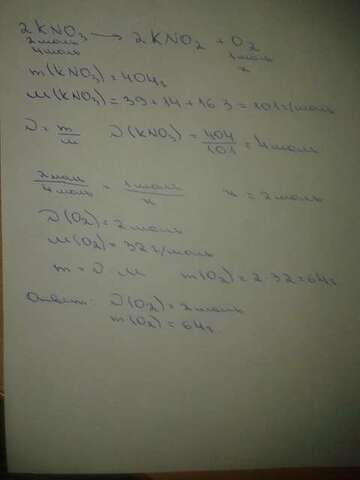 2KNO₃ → 2KNO₂ + O₂
2 моль 1 моль
4 моль x
m(KNO₃) = 404г
M(KNO₃) = 39 + 14 + 16·3 = 101 г/моль
ν = m/M ν(KNO₃) = 404/101 = 4 моль
2 моль/4 моль = 1 моль/x x = 2 моль
ν(O₂) = 2 моль
M(O₂) = 32 г/моль
m = ν · M m(O₂) = 2 · 32 = 64г
Ответ: ν(O₂) = 2 моль
m(O₂) = 64г